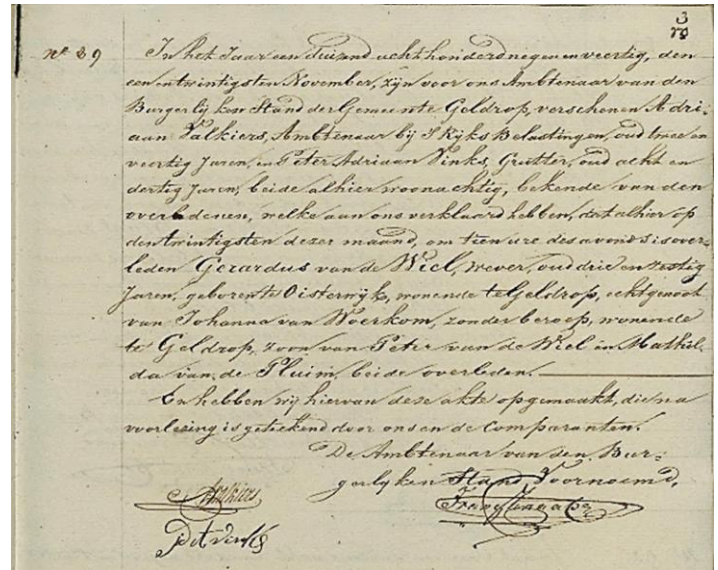 3
nº 39
In het Jaar een duizend acht honderd negen en veertig, den
een en twintigsten November, zijn voor ons Ambtenaar van den
Burgerlijken Stand der Gemeente Geldrop, verschenen Adri-
aan Valkiers, Ambtenaar bij 's Rijks Belastingen, oud twee en
veertig Jaren, en Peter Adriaan Vinks, Grutter, oud acht en
dertig Jaren, beide alhier woonachtig, bekende van den
overledenen, welke aan ons verklaard hebben, dat alhier op
den twintigsten dezer maand, om tien ure des avonds is over-
leden Gerardus van de Wiel, wever, oud drie en zestig
Jaren, geboren te Oisterwijk, wonende te Geldrop, echtgenoot
van Johanna van Woerkom, zonder beroep, wonende
te Geldrop, zoon van Peter van de Wiel en Mathil-
da van de Pluim, beide overleden.
En hebben wij hiervan deze akte opgemaakt, die na
voorlezing is geteekend door ons en de Comparanten.
De Ambtenaar van den Bur-
gerlijken Stand Voornoemd,
AValkiers
P A Vinks